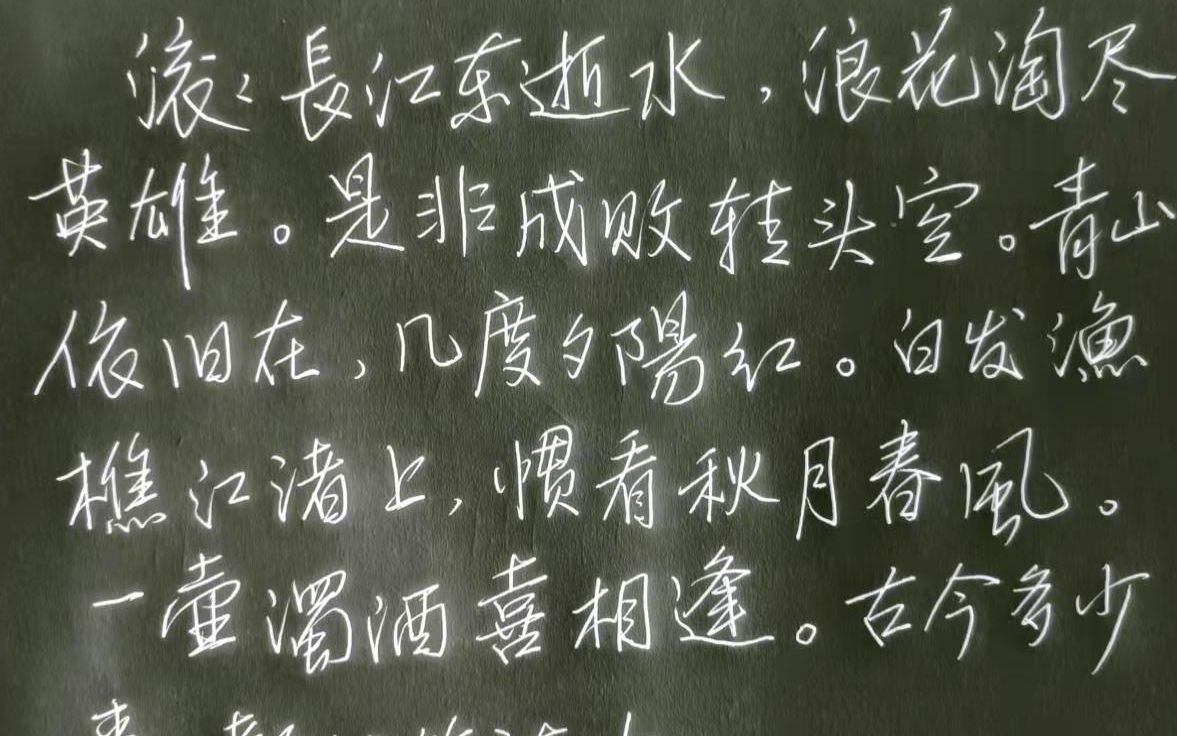 滚〻長江东逝水，浪花淘尽
英雄。是非成败转头空。青山
依旧在，几度夕陽红。白发漁
樵江渚上，惯看秋月春風。
一壶濁酒喜相逢。古今多少